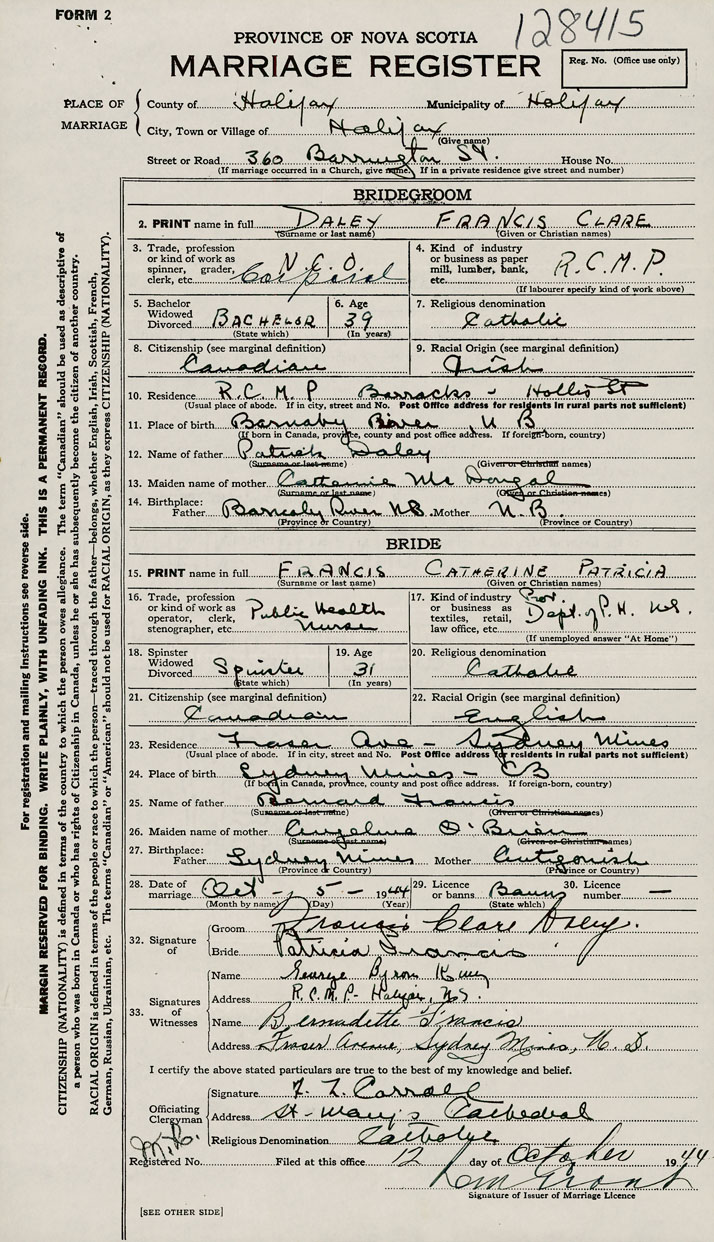 FORM 2
128415
PROVINCE OF NOVA SCOTIA
MARRIAGE REGISTER
Reg. No. (Office use only)
PLACE OF MARRIAGE
County of Halifax Municipality of Halifax
City, Town or Village of Halifax
(Give name)
Street or Road 360 Barrington St. House No.
(If marriage occurred in a Church, give name. If in a private residence give street and number)
BRIDEGROOM
2. PRINT name in full DALEY FRANCIS CLARE
(Surname or last name) (Given or Christian names)
3. Trade, profession or kind of work as spinner, grader, clerk, etc. N.C.O. Corporal
4. Kind of industry or business as paper mill, lumber, bank, etc. R.C.M.P.
(If labourer specify kind of work above)
5. Bachelor Widowed Divorced BACHELOR
(State which)
6. Age 39
(In years)
7. Religious denomination Catholic
8. Citizenship (see marginal definition) Canadian
9. Racial Origin (see marginal definition) Irish
10. Residence R.C.M.P Barracks - Hollis St
(Usual place of abode. If in city, street and No. Post Office address for residents in rural parts not sufficient)
11. Place of birth Barnaby River N B
(If born in Canada, province, county and post office address. If foreign-born, country)
12. Name of father Patrick Daley
(Surname or last name) (Given or Christian names)
13. Maiden name of mother Catherine Mc Dougal
(Surname or last name) (Given or Christian names)
14. Birthplace: Father Barnaby River NB. Mother N.B.
(Province or Country) (Province or Country)
BRIDE
15. PRINT name in full FRANCIS CATHERINE PATRICIA
(Surname or last name) (Given or Christian names)
16. Trade, profession or kind of work as operator, clerk, stenographer, etc. Public Health Nurse
17. Kind of industry or business as textiles, retail, law office, etc. Prov. Dept. of P. H. N.S.
(If unemployed answer "At Home")
18. Spinster Widowed Divorced Spinster
(State which)
19. Age 31
(In years)
20. Religious denomination Catholic
21. Citizenship (see marginal definition) Canadian
22. Racial Origin (see marginal definition) English
23. Residence Fraser Ave - Sydney Mines
(Usual place of abode. If in city, street and No. Post Office address for residents in rural parts not sufficient)
24. Place of birth Sydney Mines - CB
(If born in Canada, province, county and post office address. If foreign-born, country)
25. Name of father Bernard Francis
(Surname or last name) (Given or Christian names)
26. Maiden name of mother Angelina O'Brien
(Surname or last name) (Given or Christian names)
27. Birthplace: Father Sydney Mines Mother Antigonish
(Province or Country) (Province or Country)
28. Date of marriage Oct - 5 - 1944
(Month by name) (Day) (Year)
29. Licence or banns Banns
(State which)
30. Licence number —
32. Signature of
Groom Francis Clare Daley.
Bride Patricia Francis
33. Signatures of Witnesses
Name George Byron
Address R.C.M.P- Halifax, N.S.
Name Bernadette Francis
Address Fraser Avenue, Sydney Mines, N. S.
I certify the above stated particulars are true to the best of my knowledge and belief.
Officiating Clergyman
Signature Carroll
Address St- Mary's Cathedral
Religious Denomination Catholic
Registered No. Filed at this office 12 day of October 1944
Signature of Issuer of Marriage Licence
[SEE OTHER SIDE]
For registration and mailing instructions see reverse side.
MARGIN RESERVED FOR BINDING. WRITE PLAINLY, WITH UNFADING INK. THIS IS A PERMANENT RECORD.
CITIZENSHIP (NATIONALITY) is defined in terms of the country to which the person owes allegiance. The term "Canadian" should be used as descriptive of
a person who was born in Canada or who has rights of Citizenship in Canada, unless he or she has subsequently become the citizen of another country.
RACIAL ORIGIN is defined in terms of the people or race to which the person—traced through the father—belongs, whether English, Irish, Scottish, French,
German, Russian, Ukrainian, etc. The terms "Canadian" or "American" should not be used for RACIAL ORIGIN, as they express CITIZENSHIP (NATIONALITY).